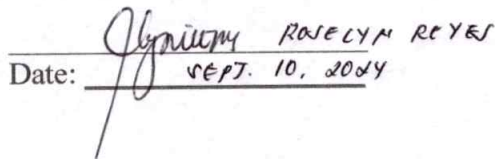 ROSELYN REYES
Date: SEPT. 10, 2024